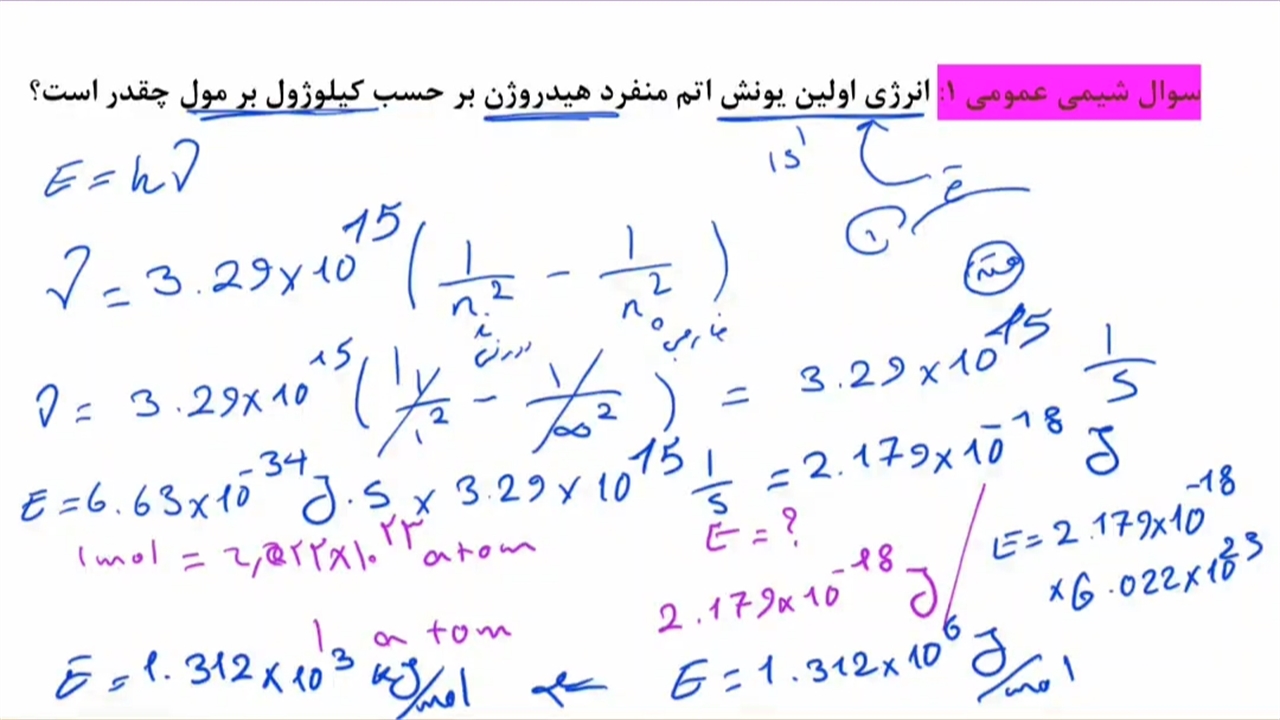 سوال شیمی عمومی ۱: انرژی اولین یونش اتم منفرد هیدروژن بر حسب کیلوژول بر مول چقدر است؟
E = hν
1s¹
e⁻
ν = 3.29×10¹⁵ (1/nᵢ² − 1/n₀²)
درونی خارجی
هسته
ν = 3.29×10¹⁵ (1/1² − 1/∞²) = 3.29×10¹⁵ 1/s
E = 6.63×10⁻³⁴ J.s × 3.29×10¹⁵ 1/s = 2.179×10⁻¹⁸ J
1mol = ۶,۰۲۲×۱۰²³ atom E = ?
1 atom 2.179×10⁻¹⁸ J
E = 2.179×10⁻¹⁸
×6.022×10²³
E = 1.312×10⁶ J/mol
E = 1.312×10³ kJ/mol ←